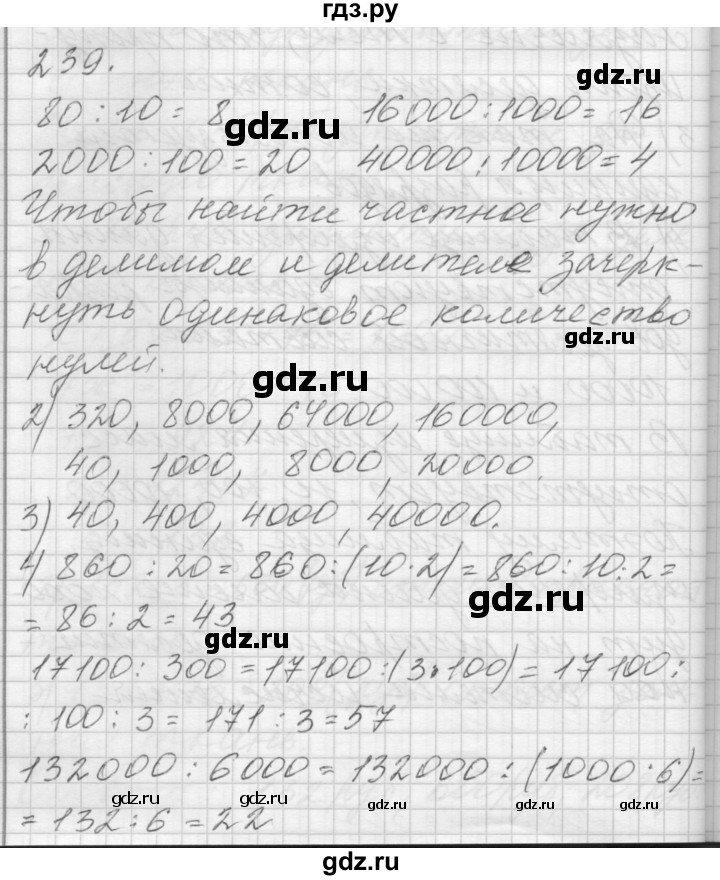 гдз.ру
239.
gdz.ru
80 : 10 = 8 16000 : 1000 = 16
gdz.ru
2000 : 100 = 20 40000 : 10000 = 4
Чтобы найти частное нужно
в делимом и делителе зачерк-
нуть одинаковое количество
gdz.ru
нулей.
gdz.ru
2) 320, 8000, 64000, 160000,
40, 1000, 8000, 20000.
3) 40, 400, 4000, 40000.
4) 860 : 20 = 860 : (10·2) = 860 : 10 : 2 =
gdz.ru
= 86 : 2 = 43
gdz.ru
17100 : 300 = 17100 : (3·100) = 17100 :
: 100 : 3 = 171 : 3 = 57
132000 : 6000 = 132000 : (1000·6) =
gdz.ru gdz.ru gdz.ru gdz.ru gdz.ru
= 132 : 6 = 22
gdz.ru